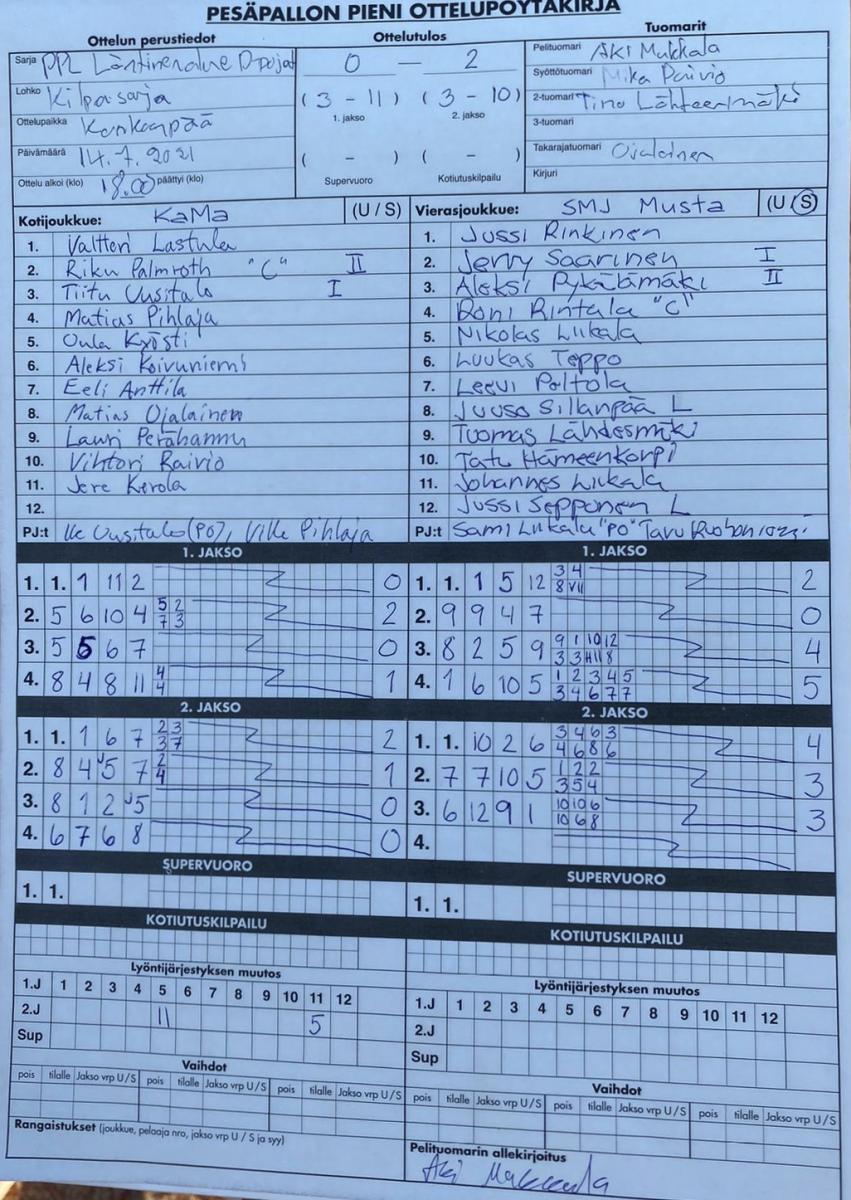 PESÄPALLON PIENI OTTELUPÖYTÄKIRJA
Ottelun perustiedot
Sarja PPL Läntinenalue D-pojat
Lohko Kilpasarja
Ottelupaikka Kankaanpää
Päivämäärä 14.7.2021
Ottelu alkoi (klo) 18.00 päättyi (klo)
Ottelutulos
0 — 2
( 3 - 11 ) ( 3 - 10 )
1. jakso 2. jakso
( - ) ( - )
Supervuoro Kotiutuskilpailu
Tuomarit
Pelituomari Aki Makkala
Syöttötuomari Mika Päiviö
2-tuomari Tino Lähteenmäki
3-tuomari
Takarajatuomari Ojalainen
Kirjuri
Kotijoukkue: KaMa (U / S)
1. Valtteri Lastula
2. Riku Palmroth "C" II
3. Tiitu Uusitalo I
4. Matias Pihlaja
5. Oula Kyösti
6. Aleksi Koivuniemi
7. Eeli Anttila
8. Matias Ojalainen
9. Lauri Perähannu
10. Vihtori Raivio
11. Jere Kerola
12.
PJ:t Uusitalo (PO), Ville Pihlaja
Vierasjoukkue: SMJ Musta (U / S)
1. Jussi Rinkinen
2. Jerry Saarinen I
3. Aleksi Pykälämäki II
4. Roni Rintala "C"
5. Nikolas Liikala
6. Luukas Teppo
7. Leevi Paltola
8. Juuso Sillanpää L
9. Tuomas Lähdesmäki
10. Tatu Hämeenkorpi
11. Johannes Liikala
12. Jussi Sepponen L
PJ:t Sami Liikala "PO"
1. JAKSO
1. 1. 1 11 2 0
2. 5 6 10 4 5 2 2
7 3
3. 5 5 6 7 0
4. 8 4 8 11 4 1
4
2. JAKSO
1. 1. 1 6 7 2 3 2
3 7
2. 8 4 5 7 2 1
4
3. 8 1 2 5 0
4. 6 7 6 8 0
SUPERVUORO
1. 1.
KOTIUTUSKILPAILU
Lyöntijärjestyksen muutos
1.J 1 2 3 4 5 6 7 8 9 10 11 12
2.J 11 5
Sup
Vaihdot
pois tilalle Jakso vrp U / S pois tilalle Jakso vrp U / S pois tilalle Jakso vrp U / S
Rangaistukset (joukkue, pelaaja nro, jakso vrp U / S ja syy)
1. JAKSO
1. 1. 1 5 12 3 4 2
8 VII
2. 9 9 4 7 0
3. 8 2 5 9 9 1 10 12 4
3 3 11 8
4. 1 6 10 5 1 2 3 4 5 5
3 4 6 7 7
2. JAKSO
1. 1. 10 2 6 3 4 6 3 4
4 6 8 6
2. 7 7 10 5 1 2 2 3
3 5 4
3. 6 12 9 1 10 10 6 3
10 6 8
4.
SUPERVUORO
1. 1.
KOTIUTUSKILPAILU
Lyöntijärjestyksen muutos
1.J 1 2 3 4 5 6 7 8 9 10 11 12
2.J
Sup
Vaihdot
pois tilalle Jakso vrp U / S pois tilalle Jakso vrp U / S pois tilalle Jakso vrp U / S
Pelituomarin allekirjoitus
Aki Makkala